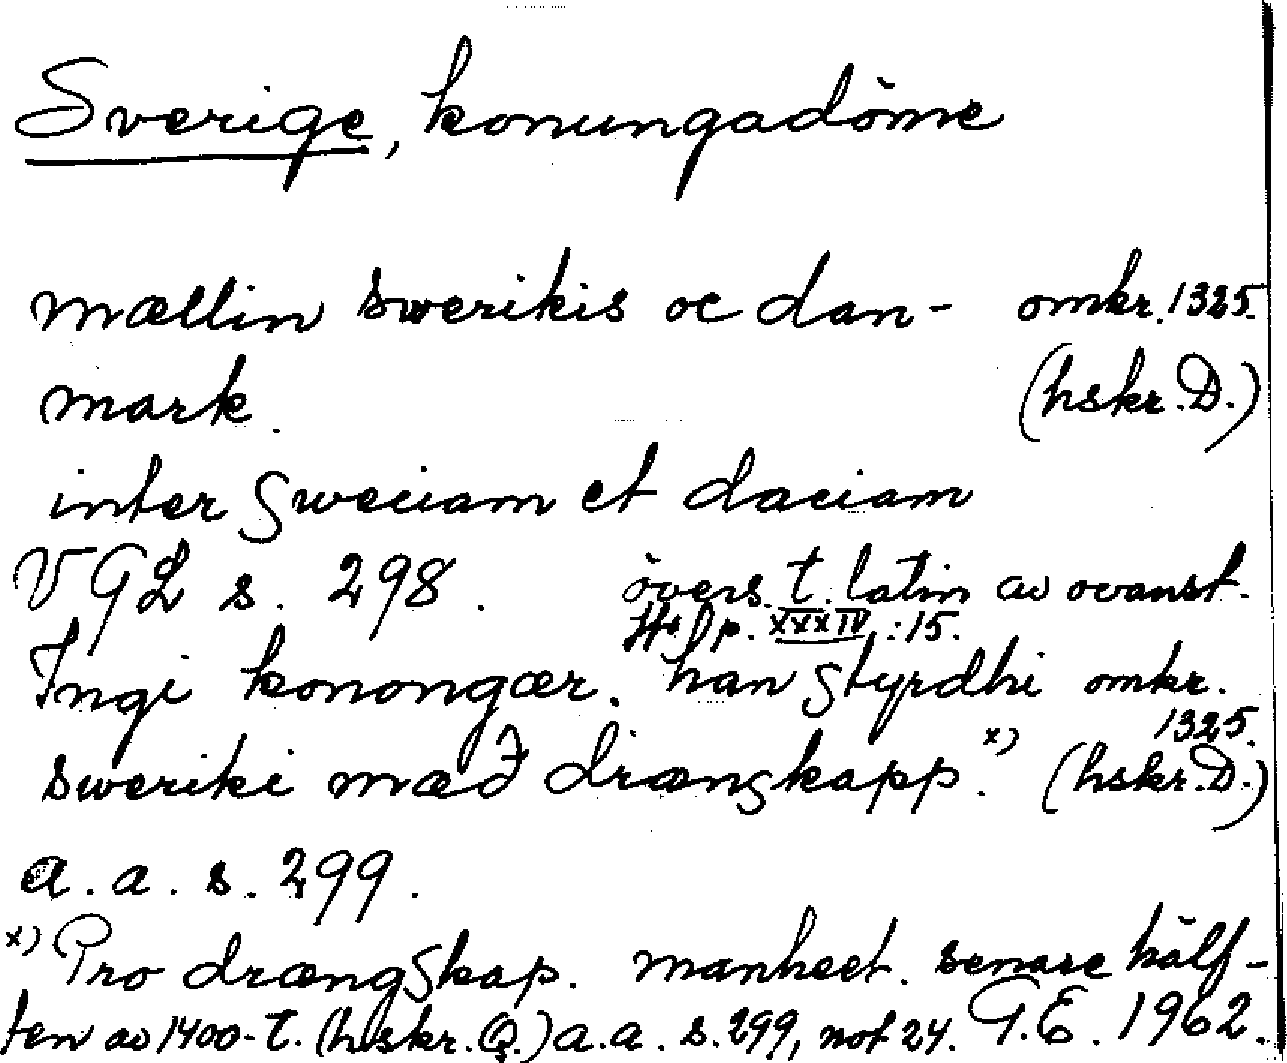 Sverige, konungadöme
mællin swerikis oc dan- omkr. 1325.
mark. (hskr. D.)
inter Sweciam et daciam
VGL s. 298. övers. t. latin av ovanst.
Hslp. XXXIV :15.
Ingi konongær. han styrdhi omkr.
1325.
sweriki mæð drængskapp.x) (hskr. D.)
a. a. s. 299.
x) Pro drængskap. manheet. senare hälf-
ten av 1400-t. (hskr. Q.) a.a. s. 299, not 24. G.E. 1962.